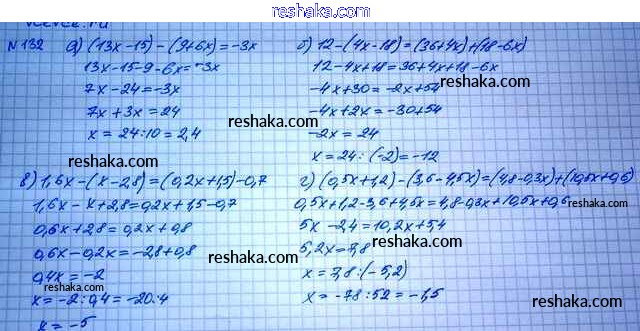 reshaka.ru
№132 а) (13x-15)-(9+6x)=-3x
13x-15-9-6x=-3x
7x-24=-3x
7x+3x=24
x=24:10=2,4
б) 12-(4x-18)=(36+4x)+(18-6x)
12-4x+18=36+4x+18-6x
-4x+30=-2x+54
-4x+2x=-30+54
-2x=24
x=24:(-2)=-12
в) 1,6x-(x-2,8)=(0,2x+1,5)-0,7
1,6x-x+2,8=0,2x+1,5-0,7
0,6x+2,8=0,2x+0,8
0,6x-0,2x=-2,8+0,8
0,4x=-2
x=-2:0,4=-20:4
x=-5
г) (0,5x+1,2)-(3,6-4,5x)=(4,8-0,3x)+(10,5x+0,6)
0,5x+1,2-3,6+4,5x=4,8-0,3x+10,5x+0,6
5x-2,4=10,2x+5,4
5,2x=7,8
x=7,8:(-5,2)
x=-78:52=-1,5
reshaka.ru
reshaka.ru
reshaka.ru
reshaka.ru
reshaka.ru
reshaka.ru
reshaka.ru
reshaka.ru